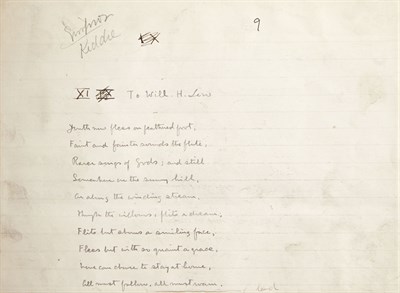 9
Simpson
Kiddie
IX
XI IX To Will. H. Low
Youth now flees on feathered foot,
Faint and fainter sounds the flute,
Rarer songs of Gods; and still
Somewhere on the sunny hill,
Or along the winding stream,
Through the willows, flits a dream;
Flits but shows a smiling face,
Flees but with so quaint a grace,
None can choose to stay at home,
All must follow, all must roam.